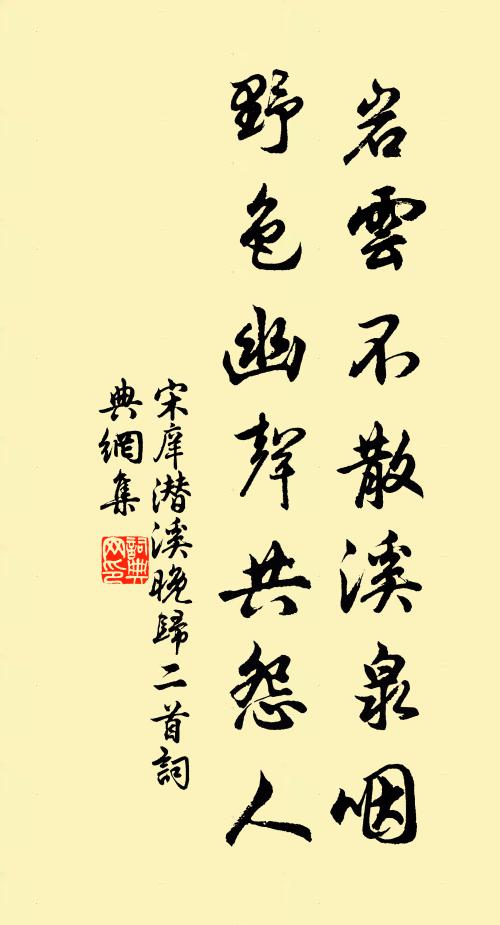 岩雲不散溪泉咽
野色幽聲共怨人
宋庠潛溪晚歸二首詞
典網集
詞典網印